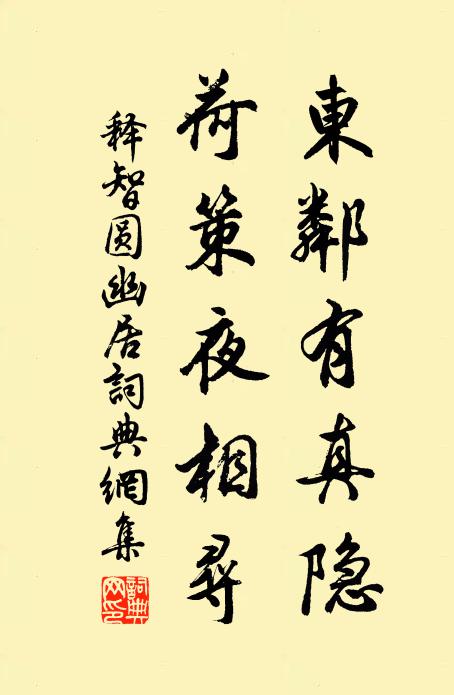 東鄰有真隐
荷策夜相尋
释智圆幽居詞典網集
詞典
网印